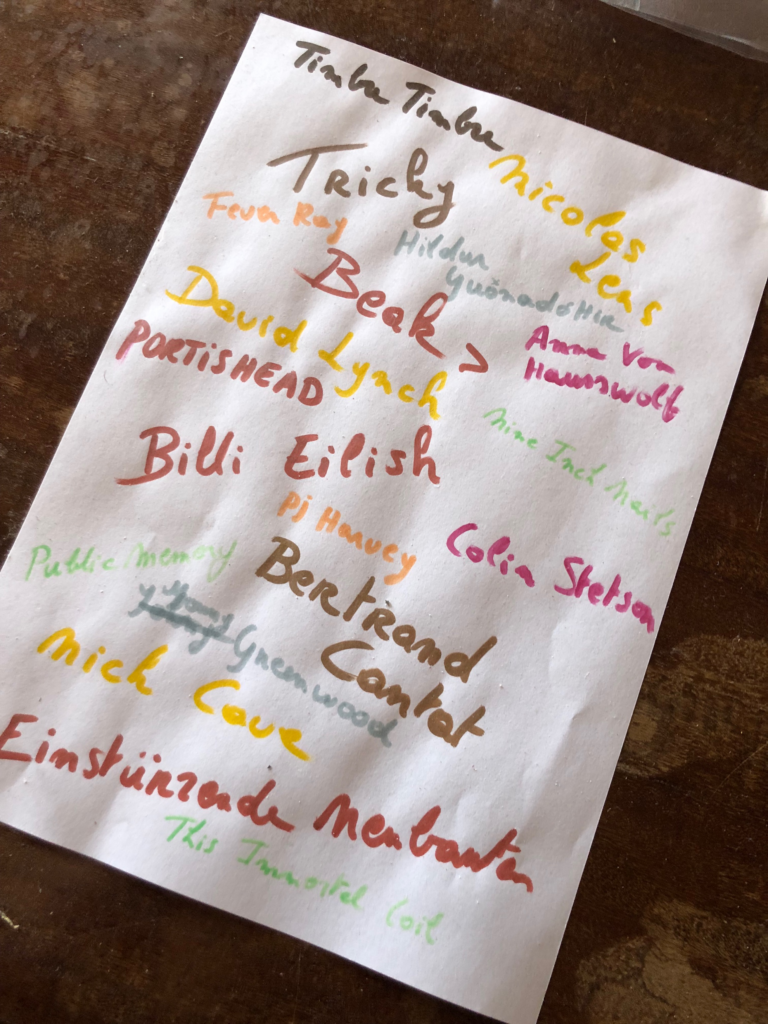 Timbre Timbre
Tricky
Nicolas
Lens
Fever Ray
Hildur
Guðnadóttir
Beak >
Anna Von
Hausswolf
David Lynch
PORTISHEAD
Nine Inch Nails
Billi Eilish
Pj Harvey
Colin Stetson
Public Memory
Bertrand
Cantat
Greenwood
Nick Cave
Einstürzende Neubauten
This Immortal Coil